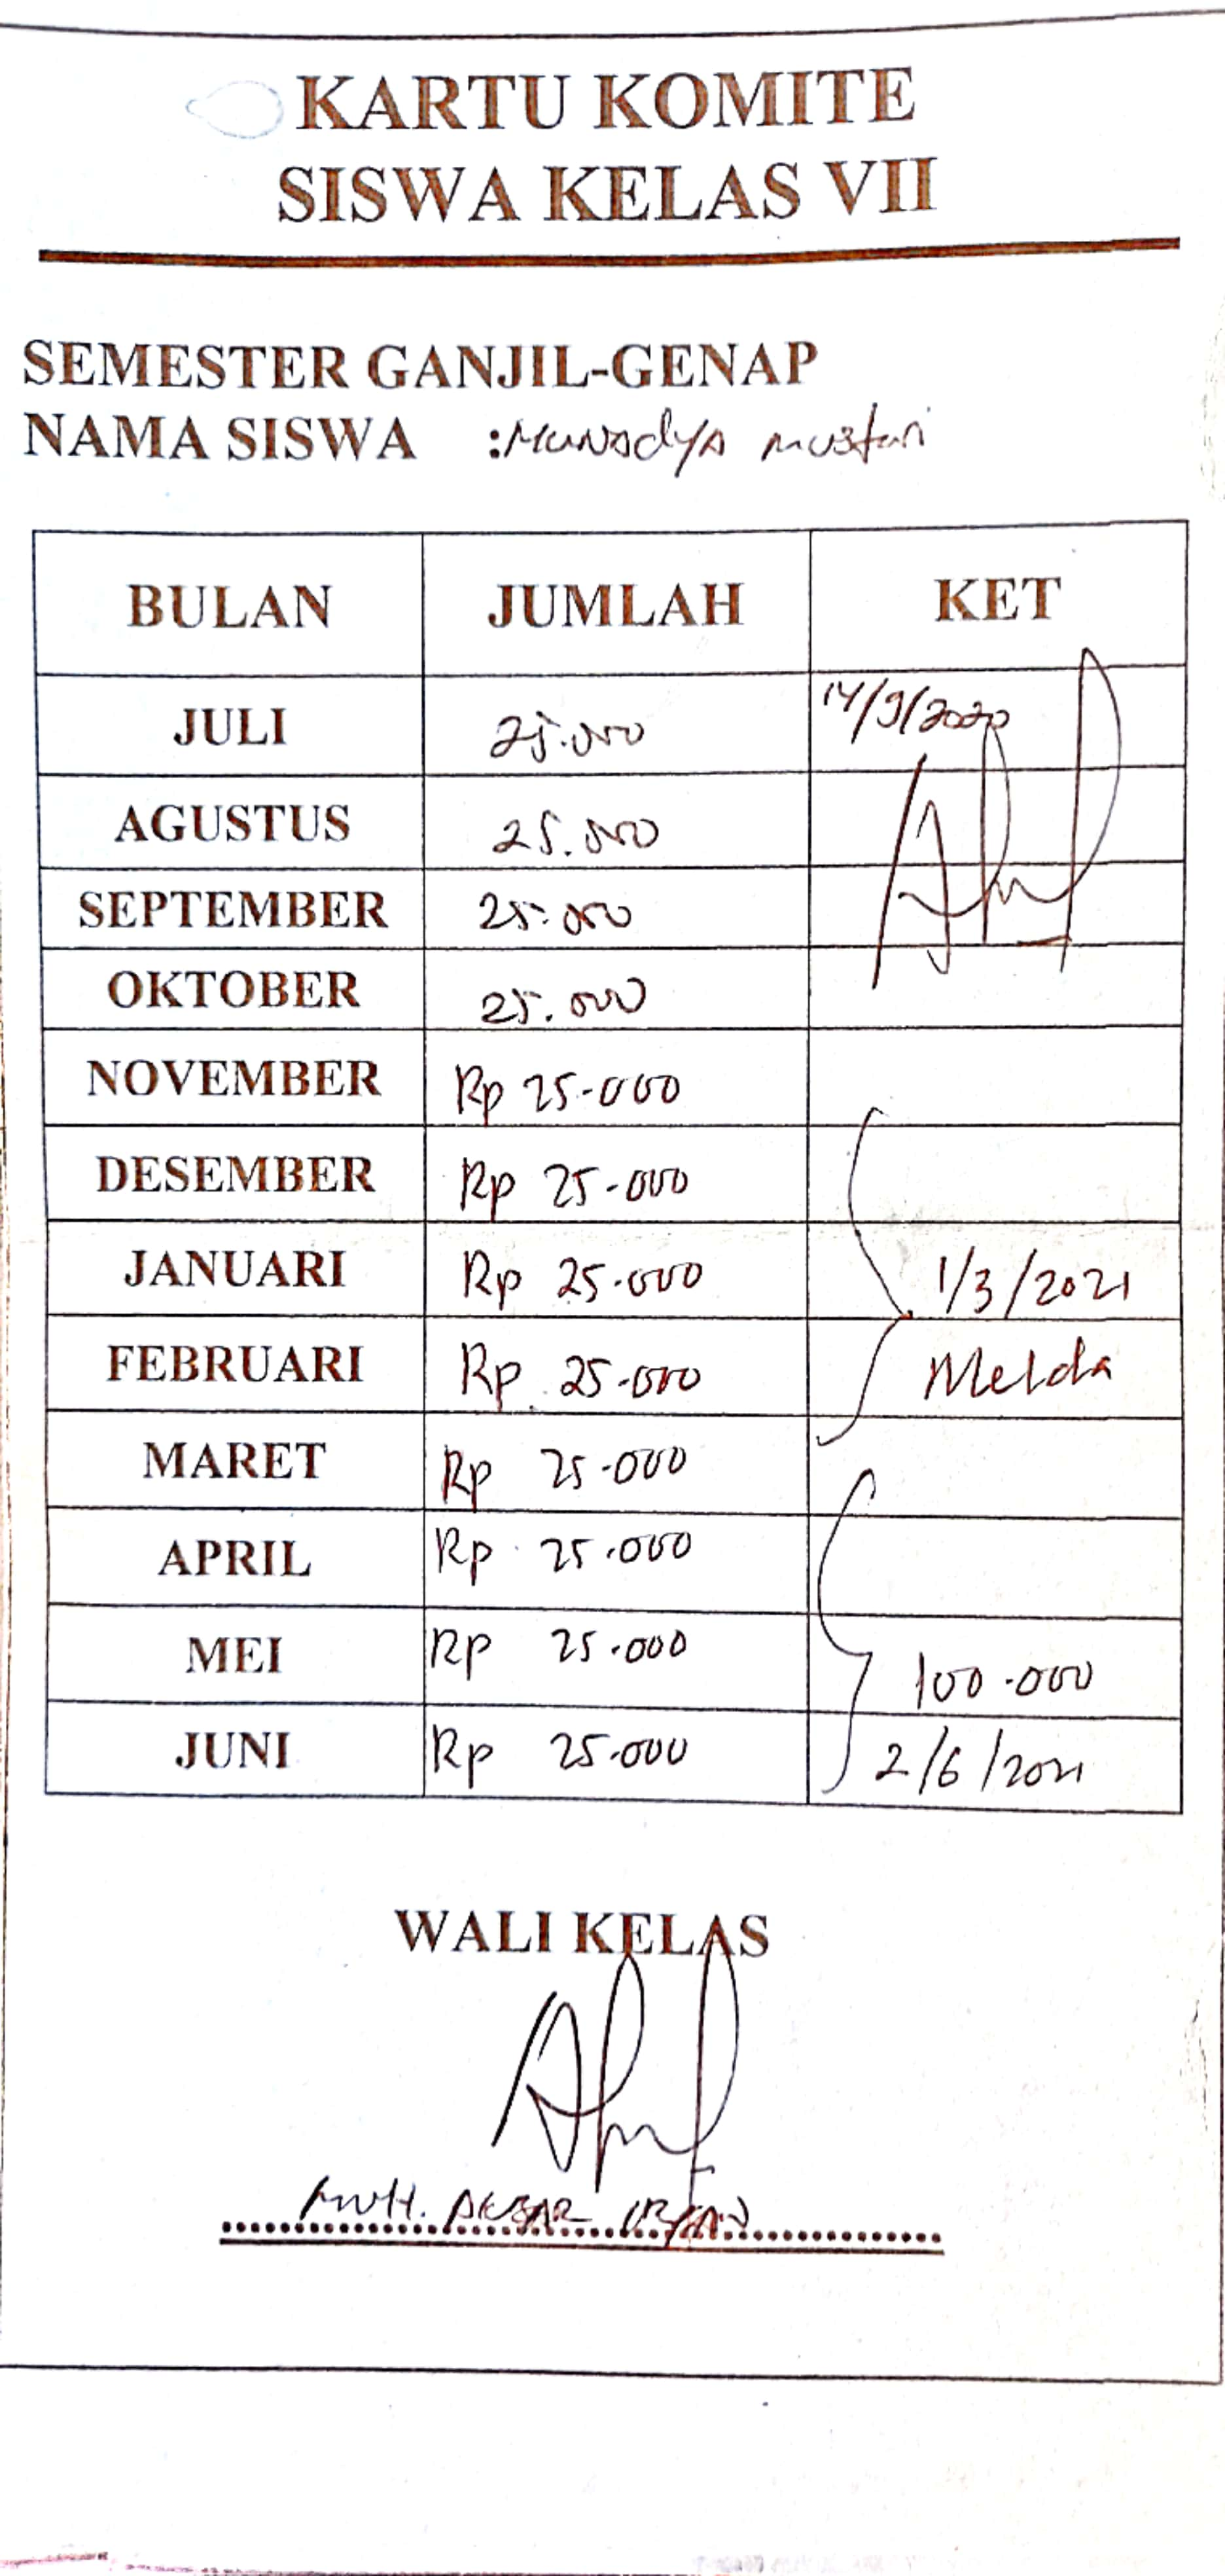 KARTU KOMITE
SISWA KELAS VII
SEMESTER GANJIL-GENAP
NAMA SISWA : Munadya Mustari
BULAN JUMLAH KET
JULI 25.000 14/9/2020
AGUSTUS 25.000
SEPTEMBER 25.000
OKTOBER 25.000
NOVEMBER Rp 25.000
DESEMBER Rp 25.000
JANUARI Rp 25.000 1/3/2021
FEBRUARI Rp 25.000 Melda
MARET Rp 25.000
APRIL Rp 25.000
MEI Rp 25.000 100.000
JUNI Rp 25.000 2/6/2021
WALI KELAS
MUH. AKBAR IRFAN